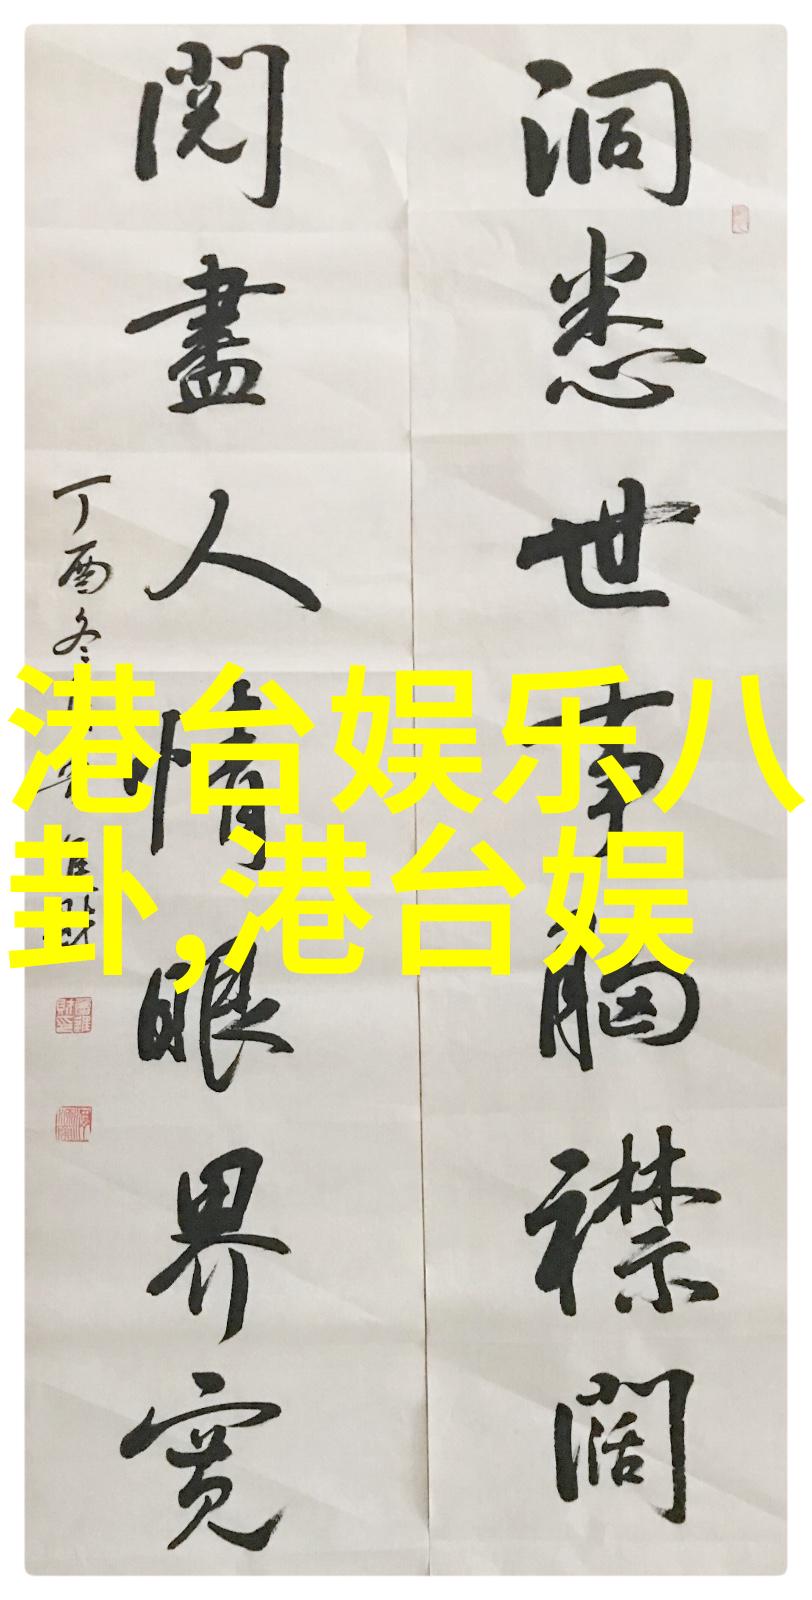 洞悉世事胸襟阔
阅尽人情眼界宽
丁酉冬
港台娱乐八
卦,港台娱